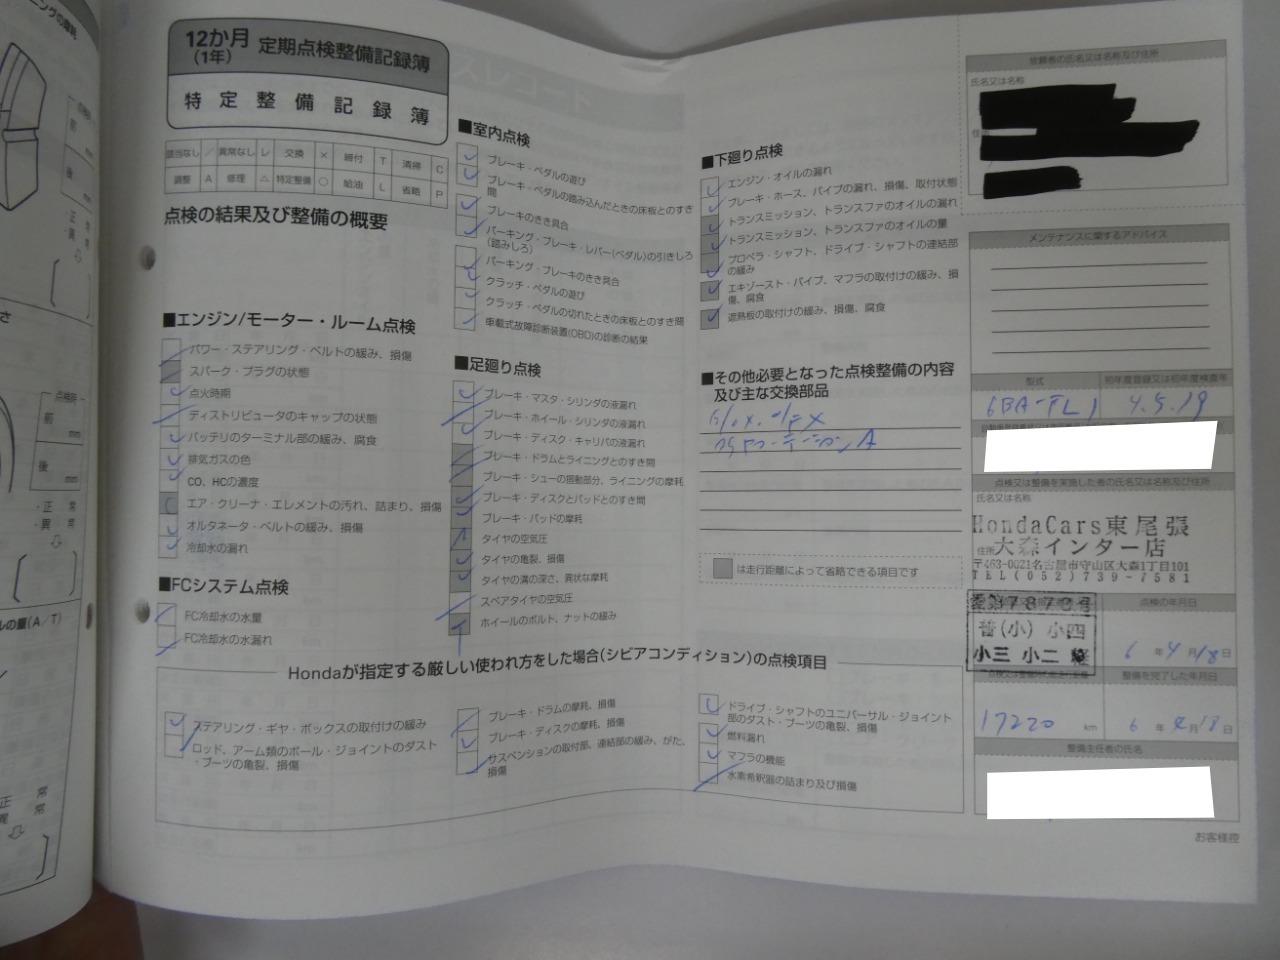 12か月
(1年)
定期点検整備記録簿
特定整備記録簿
該当なし ／ 異常なし レ 交換 × 締付 T 清掃 C
調整 A 修理 △ 特定整備 ○ 給油 L 省略 P
点検の結果及び整備の概要
■エンジン/モーター・ルーム点検
パワー・ステアリング・ベルトの緩み、損傷
スパーク・プラグの状態
点火時期
ディストリビュータのキャップの状態
バッテリのターミナル部の緩み、腐食
排気ガスの色
CO、HCの濃度
エア・クリーナ・エレメントの汚れ、詰まり、損傷
オルタネータ・ベルトの緩み、損傷
冷却水の漏れ
■FCシステム点検
FC冷却水の水量
FC冷却水の水漏れ
■室内点検
ブレーキ・ペダルの遊び
ブレーキ・ペダルの踏み込んだときの床板とのすき
間
ブレーキのきき具合
パーキング・ブレーキ・レバー(ペダル)の引きしろ
(踏みしろ)
パーキング・ブレーキのきき具合
クラッチ・ペダルの遊び
クラッチ・ペダルの切れたときの床板とのすき間
車載式故障診断装置(OBD)の診断の結果
■足廻り点検
ブレーキ・マスタ・シリンダの液漏れ
ブレーキ・ホイール・シリンダの液漏れ
ブレーキ・ディスク・キャリパの液漏れ
ブレーキ・ドラムとライニングとのすき間
ブレーキ・シューの摺動部分、ライニングの摩耗
ブレーキ・ディスクとパッドとのすき間
ブレーキ・パッドの摩耗
タイヤの空気圧
タイヤの亀裂、損傷
タイヤの溝の深さ、異状な摩耗
スペアタイヤの空気圧
ホイールのボルト、ナットの緩み
■下廻り点検
エンジン・オイルの漏れ
ブレーキ・ホース、パイプの漏れ、損傷、取付状態
トランスミッション、トランスファのオイルの漏れ
トランスミッション、トランスファのオイルの量
プロペラ・シャフト、ドライブ・シャフトの連結部
の緩み
エキゾースト・パイプ、マフラの取付けの緩み、損
傷、腐食
遮熱板の取付けの緩み、損傷、腐食
■その他必要となった点検整備の内容
及び主な交換部品
は走行距離によって省略できる項目です
Hondaが指定する厳しい使われ方をした場合(シビアコンディション)の点検項目
ステアリング・ギヤ・ボックスの取付けの緩み
ロッド、アーム類のボール・ジョイントのダスト
・ブーツの亀裂、損傷
ブレーキ・ドラムの摩耗、損傷
ブレーキ・ディスクの摩耗、損傷
サスペンションの取付部、連結部の緩み、がた、
損傷
ドライブ・シャフトのユニバーサル・ジョイント
部のダスト・ブーツの亀裂、損傷
燃料漏れ
マフラの機能
水素希釈器の詰まり及び損傷
依頼者の氏名又は名称及び住所
氏名又は名称
住所
メンテナンスに関するアドバイス
型式 初年度登録又は初年度検査年
6BA-FL1 4.5.19
点検又は整備を実施した者の氏名又は名称及び住所
氏名又は名称
HondaCars東尾張
住所 大森インター店
〒463-0021名古屋市守山区大森1丁目101
TEL(052)739-7581
愛第7870号
普(小) 小四
小三 小二 軽
点検の年月日
6 年 4 月 18 日
整備を完了した年月日
17220 km 6 年 4 月 18 日
整備主任者の氏名
お客様控
点検時
前 mm
後 mm
・正 常
・異 常
ルの量(A/T)